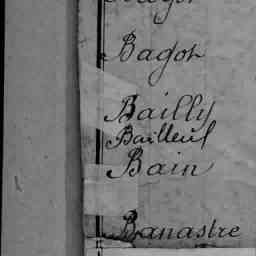 Bagot
Bailly
Bailleul
Bain
Banastre